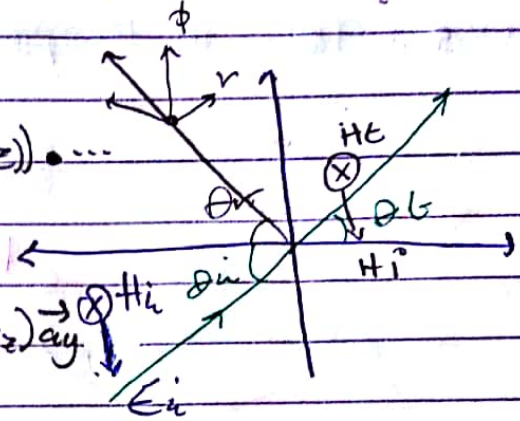 ϕ
r
z)) • ...
Ht
θr
θt
Hi
θi
Hi
z) ay
Ei